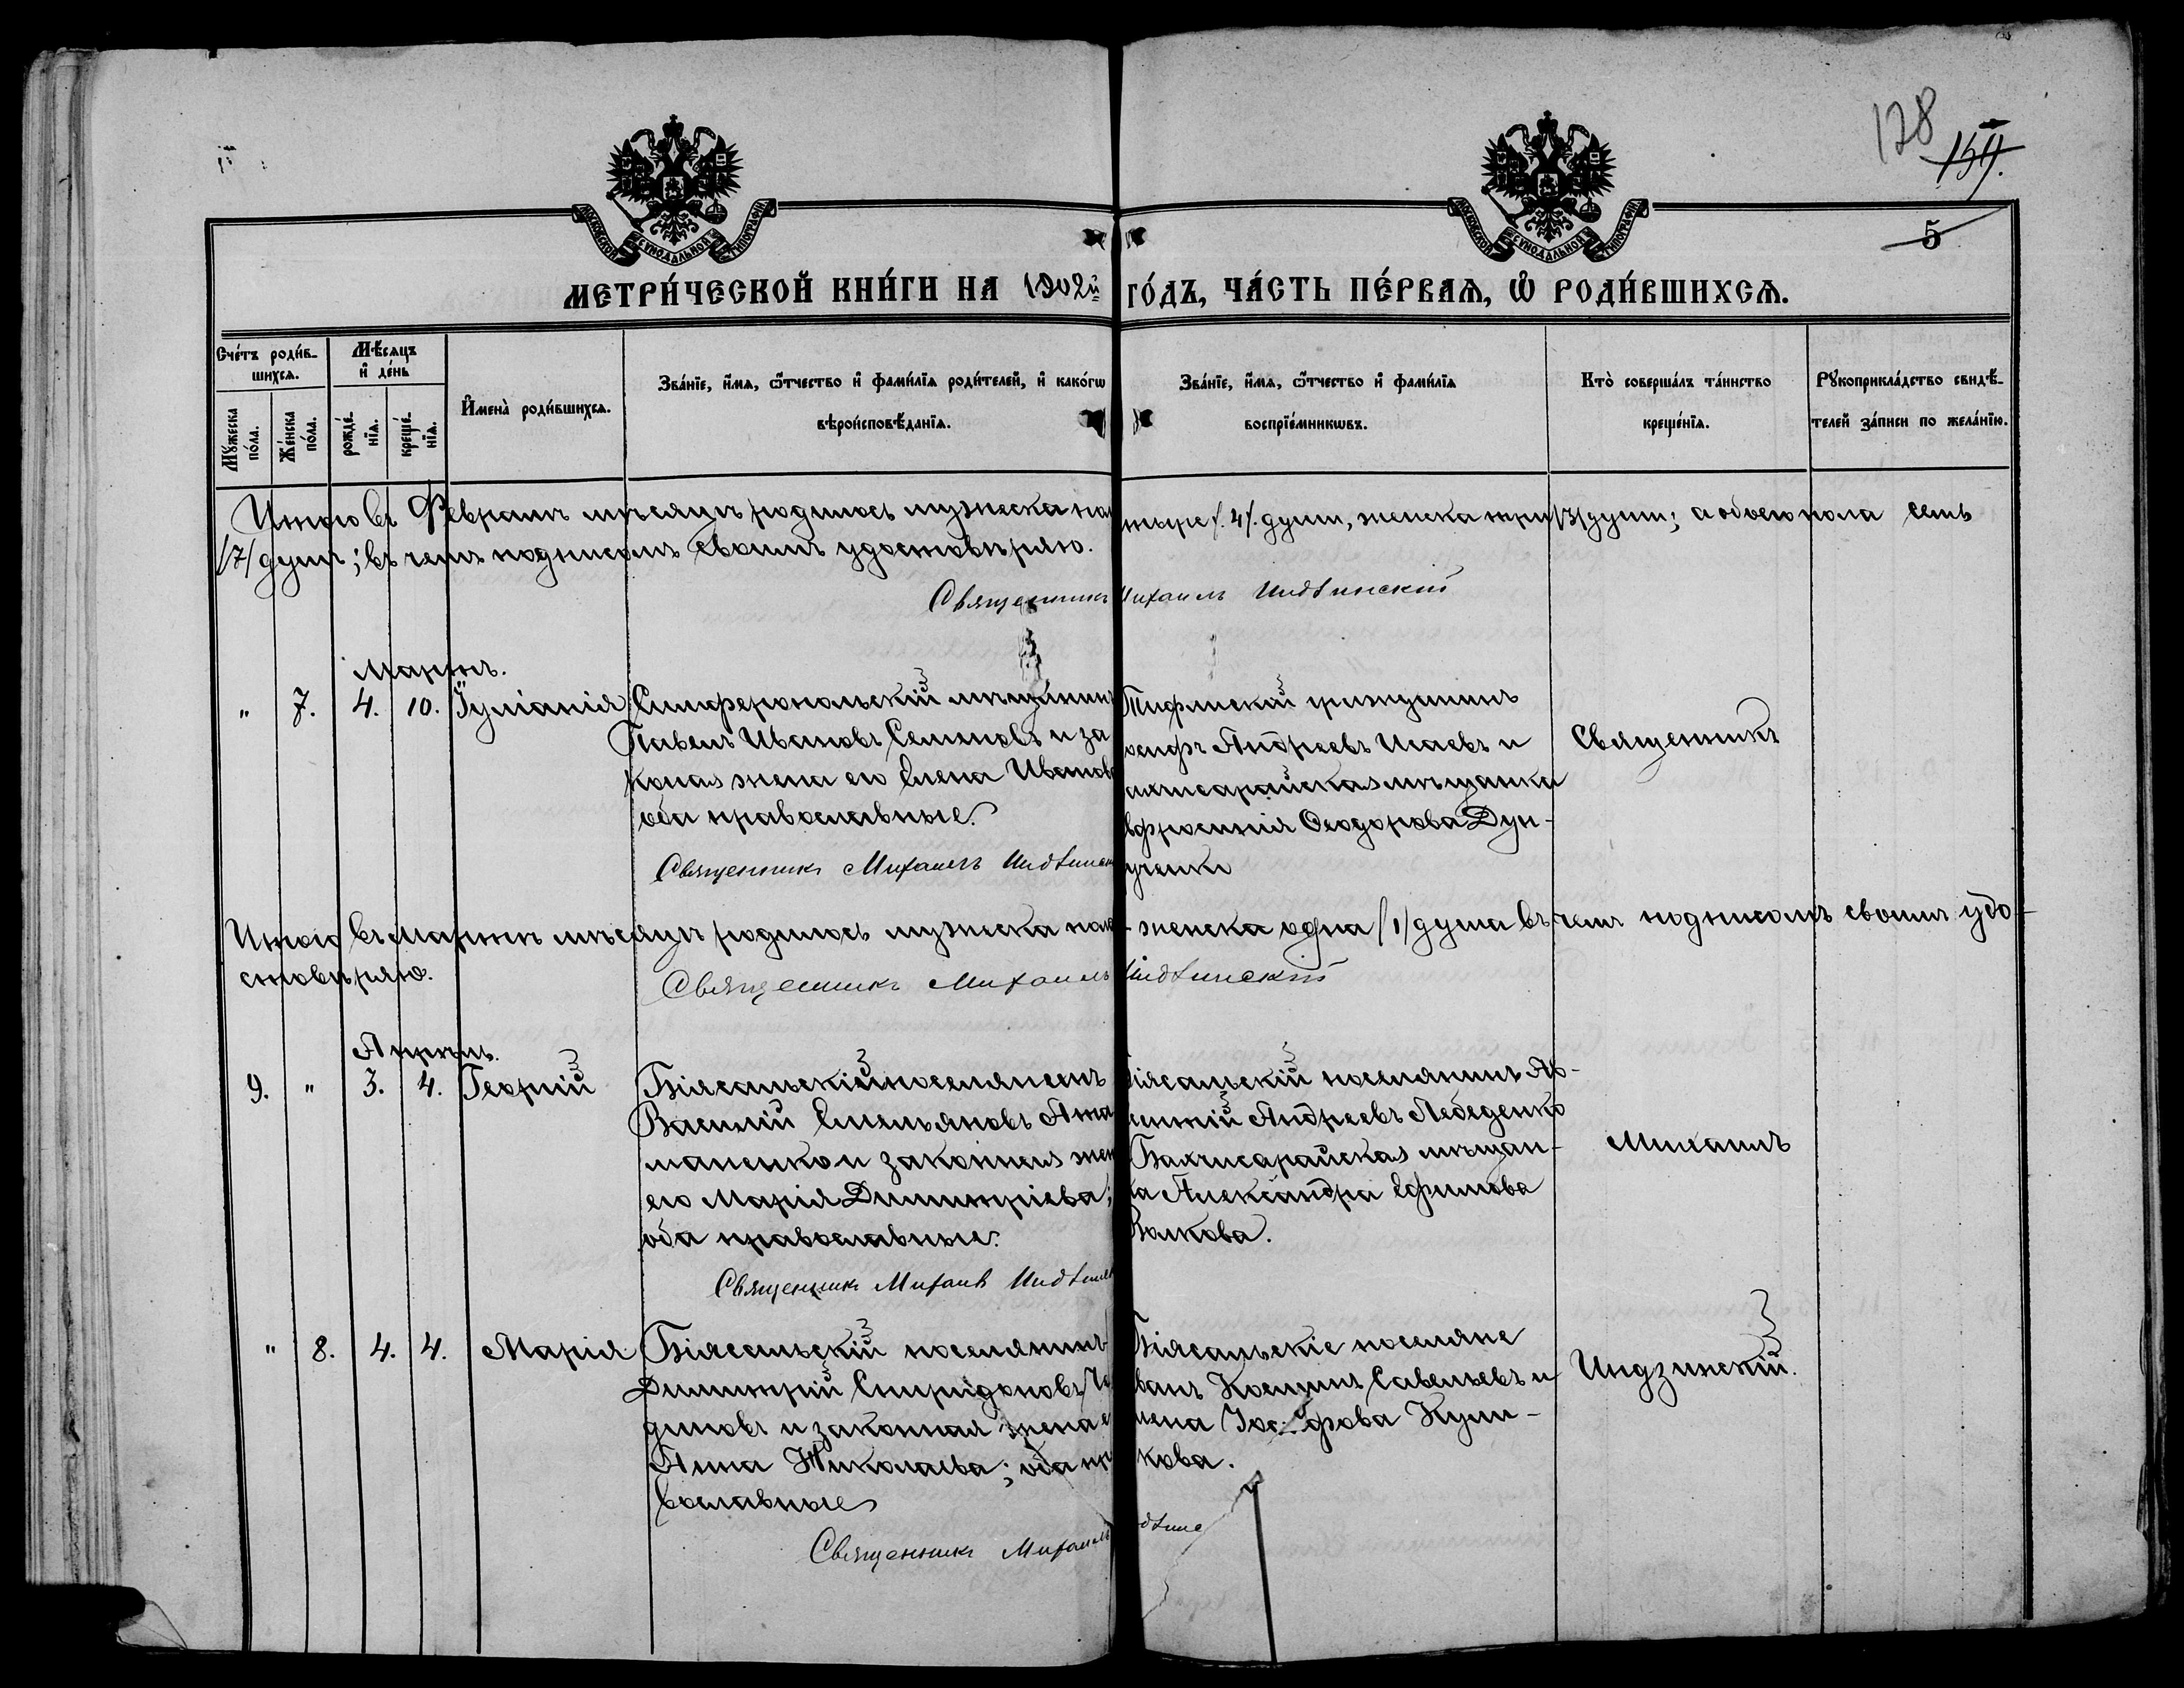 128
159.
5
МОСКОВСКОЙ СѴНОДАЛЬНОЙ ТИПОГРАФІИ
МОСКОВСКОЙ СѴНОДАЛЬНОЙ ТИПОГРАФІИ
МЕТРИ́ЧЕСКОЙ КНИ́ГИ НА 1902й ГО́ДЪ, ЧА́СТЬ ПЕ́РВАѦ, Ѡ҆ РОДИ́ВШИХСѦ.
Сче́тъ роди́в-
шихсѧ.
Мѣ́сѧцъ
и҆ де́нь
Мꙋ́жеска
по́ла.
Же́нска
по́ла.
рожде́-
нїѧ.
креще́-
нїѧ.
И҆мена̀ роди́вшихсѧ.
Зва́нїе, и҆́мѧ, ѻ҆́тчество и҆ фами́лїѧ роди́телей, и҆ како́гѡ
вѣроисповѣ́данїѧ.
Зва́нїе, и҆́мѧ, ѻ҆́тчество и҆ фами́лїѧ
воспрїе́мникѡвъ.
Кто̀ соверша́лъ та́инство
креще́нїѧ.
Рꙋкоприкла́дство свидѣ́-
телей за́писи по жела́нїю.
Итого въ Февралѣ мѣсяцѣ родилось мужеска пол тыре /.4/. души, женска три /3/ души; а обоего пола семь
/7/ душъ; въ чемъ подписомъ своимъ удостовѣряю.
Священникъ Михаилъ Индзинскій
Мартъ.
" 7. 4. 10. Іуліанія
Симферопольскій мѣщанинъ
Павелъ Ивановъ Семеновъ и за
конная жена его Елена Иванова
оба православные.
Священникъ Михаилъ Индзинск
Тифлискій гражданинъ
осифъ Андреевъ Исаевъ и
ахчисарайская мѣщанка
вфросинія Ѳеодорова Дун-
Священникъ
Итого въ Мартѣ мѣсяцѣ родилось мужеска пола - женска одна /1/ душа въ чемъ подписомъ своимъ удо-
стовѣряю.
Священникъ Михаилъ Индзинскій
Апрѣль.
9. " 3. 4. Георгій
Біясальскій поселянинъ
Василій Емельяновъ Ата
маненко и законная жен
его Марія Димитріева;
оба православные.
Священникъ Михаилъ Индзинск
Біясальскій поселянинъ
Андреевъ Лебеденко
Бахчисарайская мѣщан-
ка Александра Ефимова
Волкова.
Михаилъ
" 8. 4. 4. Марія
Біясальскій поселянинъ
Димитрій Спиридоновъ
диновъ и законная жена е
Анна Николаева; оба пр
вославные
Священникъ Михаилъ ндзинс
Біясальскіе поселяне
ванъ Савельевъ и
лена Іосифова Кули-
кова.
Индзинскій.